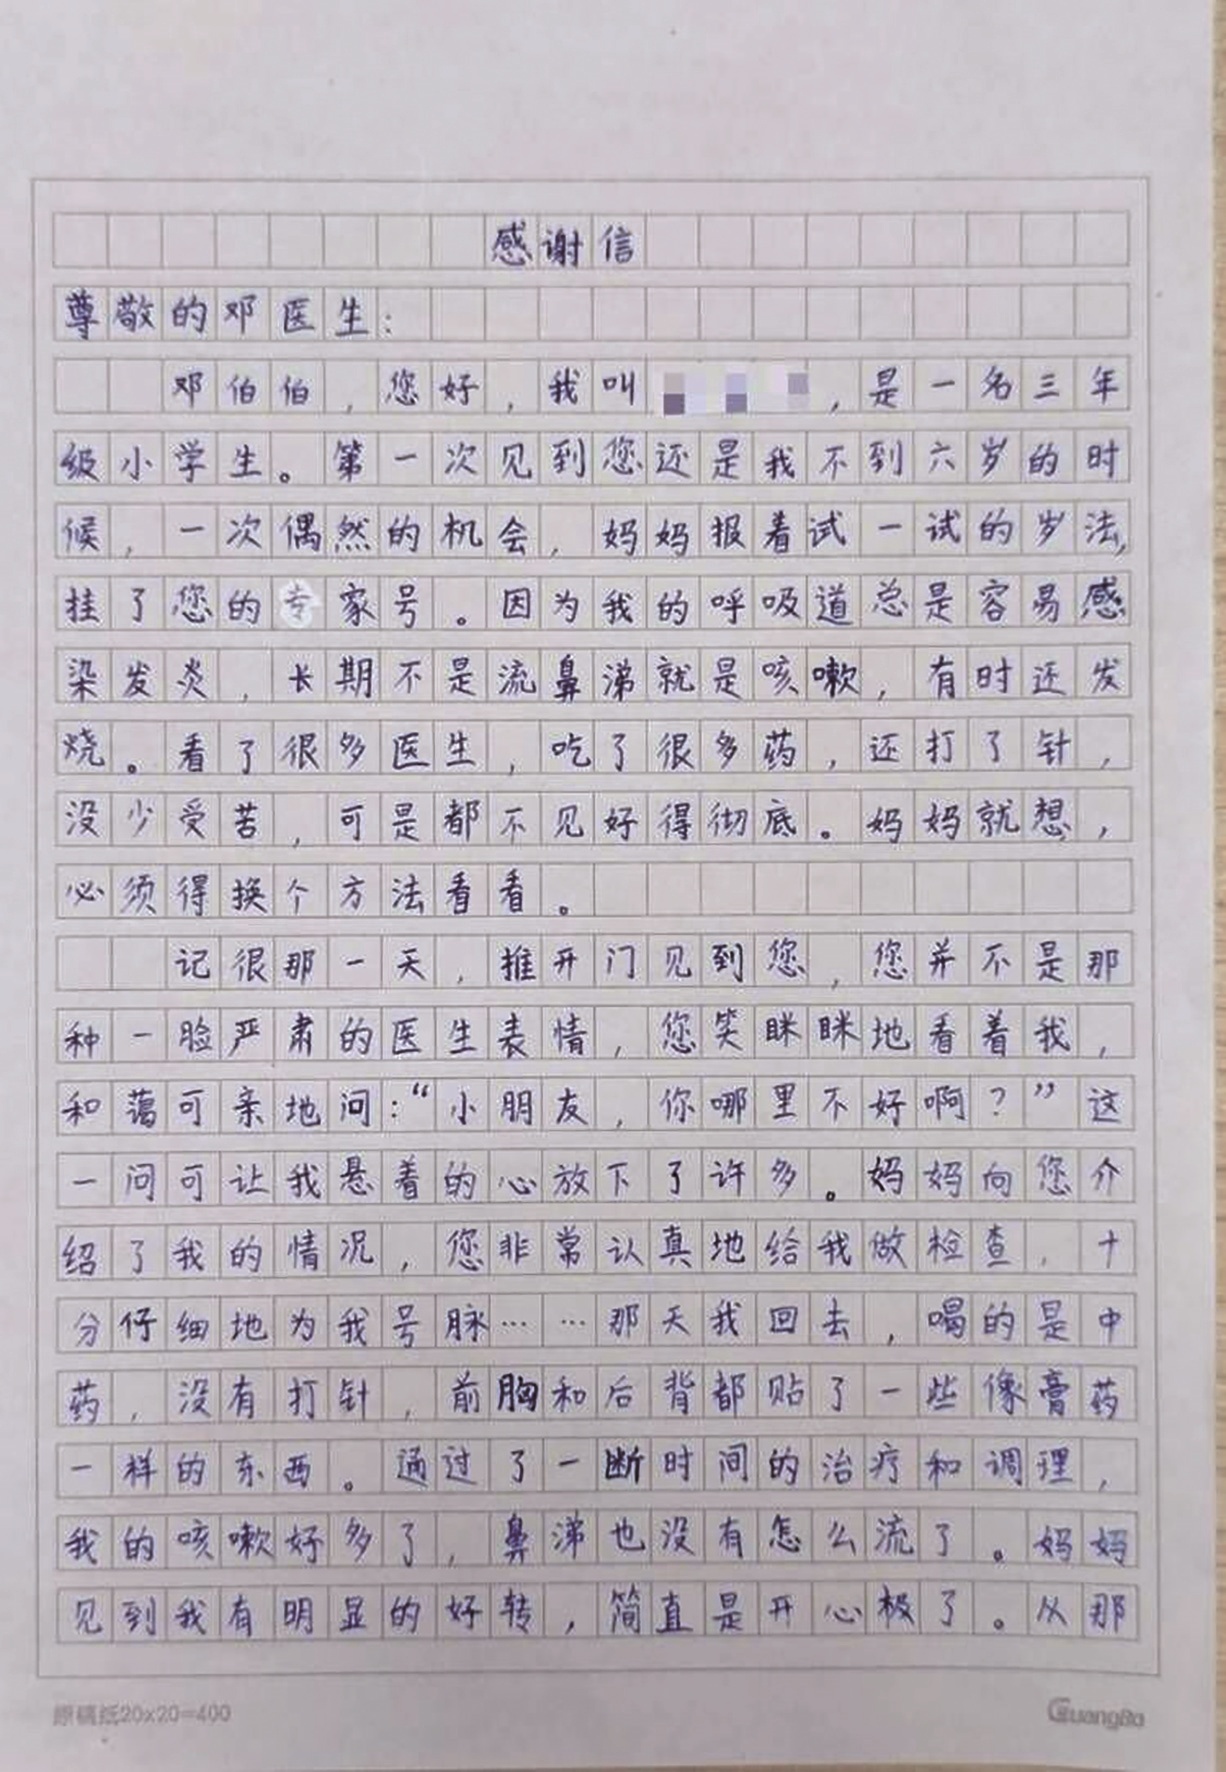 感谢信
尊敬的邓医生：
邓伯伯，您好，我叫，是一名三年
级小学生。第一次见到您还是我不到六岁的时
候，一次偶然的机会，妈妈报着试一试的岁法，
挂了您的专家号。因为我的呼吸道总是容易感
染发炎，长期不是流鼻涕就是咳嗽，有时还发
烧。看了很多医生，吃了很多药，还打了针，
没少受苦，可是都不见好得彻底。妈妈就想，
必须得换个方法看看。
记很那一天，推开门见到您，您并不是那
种一脸严肃的医生表情，您笑眯眯地看着我，
和蔼可亲地问：“小朋友，你哪里不好啊？”这
一问可让我悬着的心放下了许多。妈妈向您介
绍了我的情况，您非常认真地给我做检查，十
分仔细地为我号脉……那天我回去，喝的是中
药，没有打针，前胸和后背都贴了一些像膏药
一样的东西。通过了一断时间的治疗和调理，
我的咳嗽好多了，鼻涕也没有怎么流了。妈妈
见到我有明显的好转，简直是开心极了。从那
原稿纸20x20=400
GuangBo